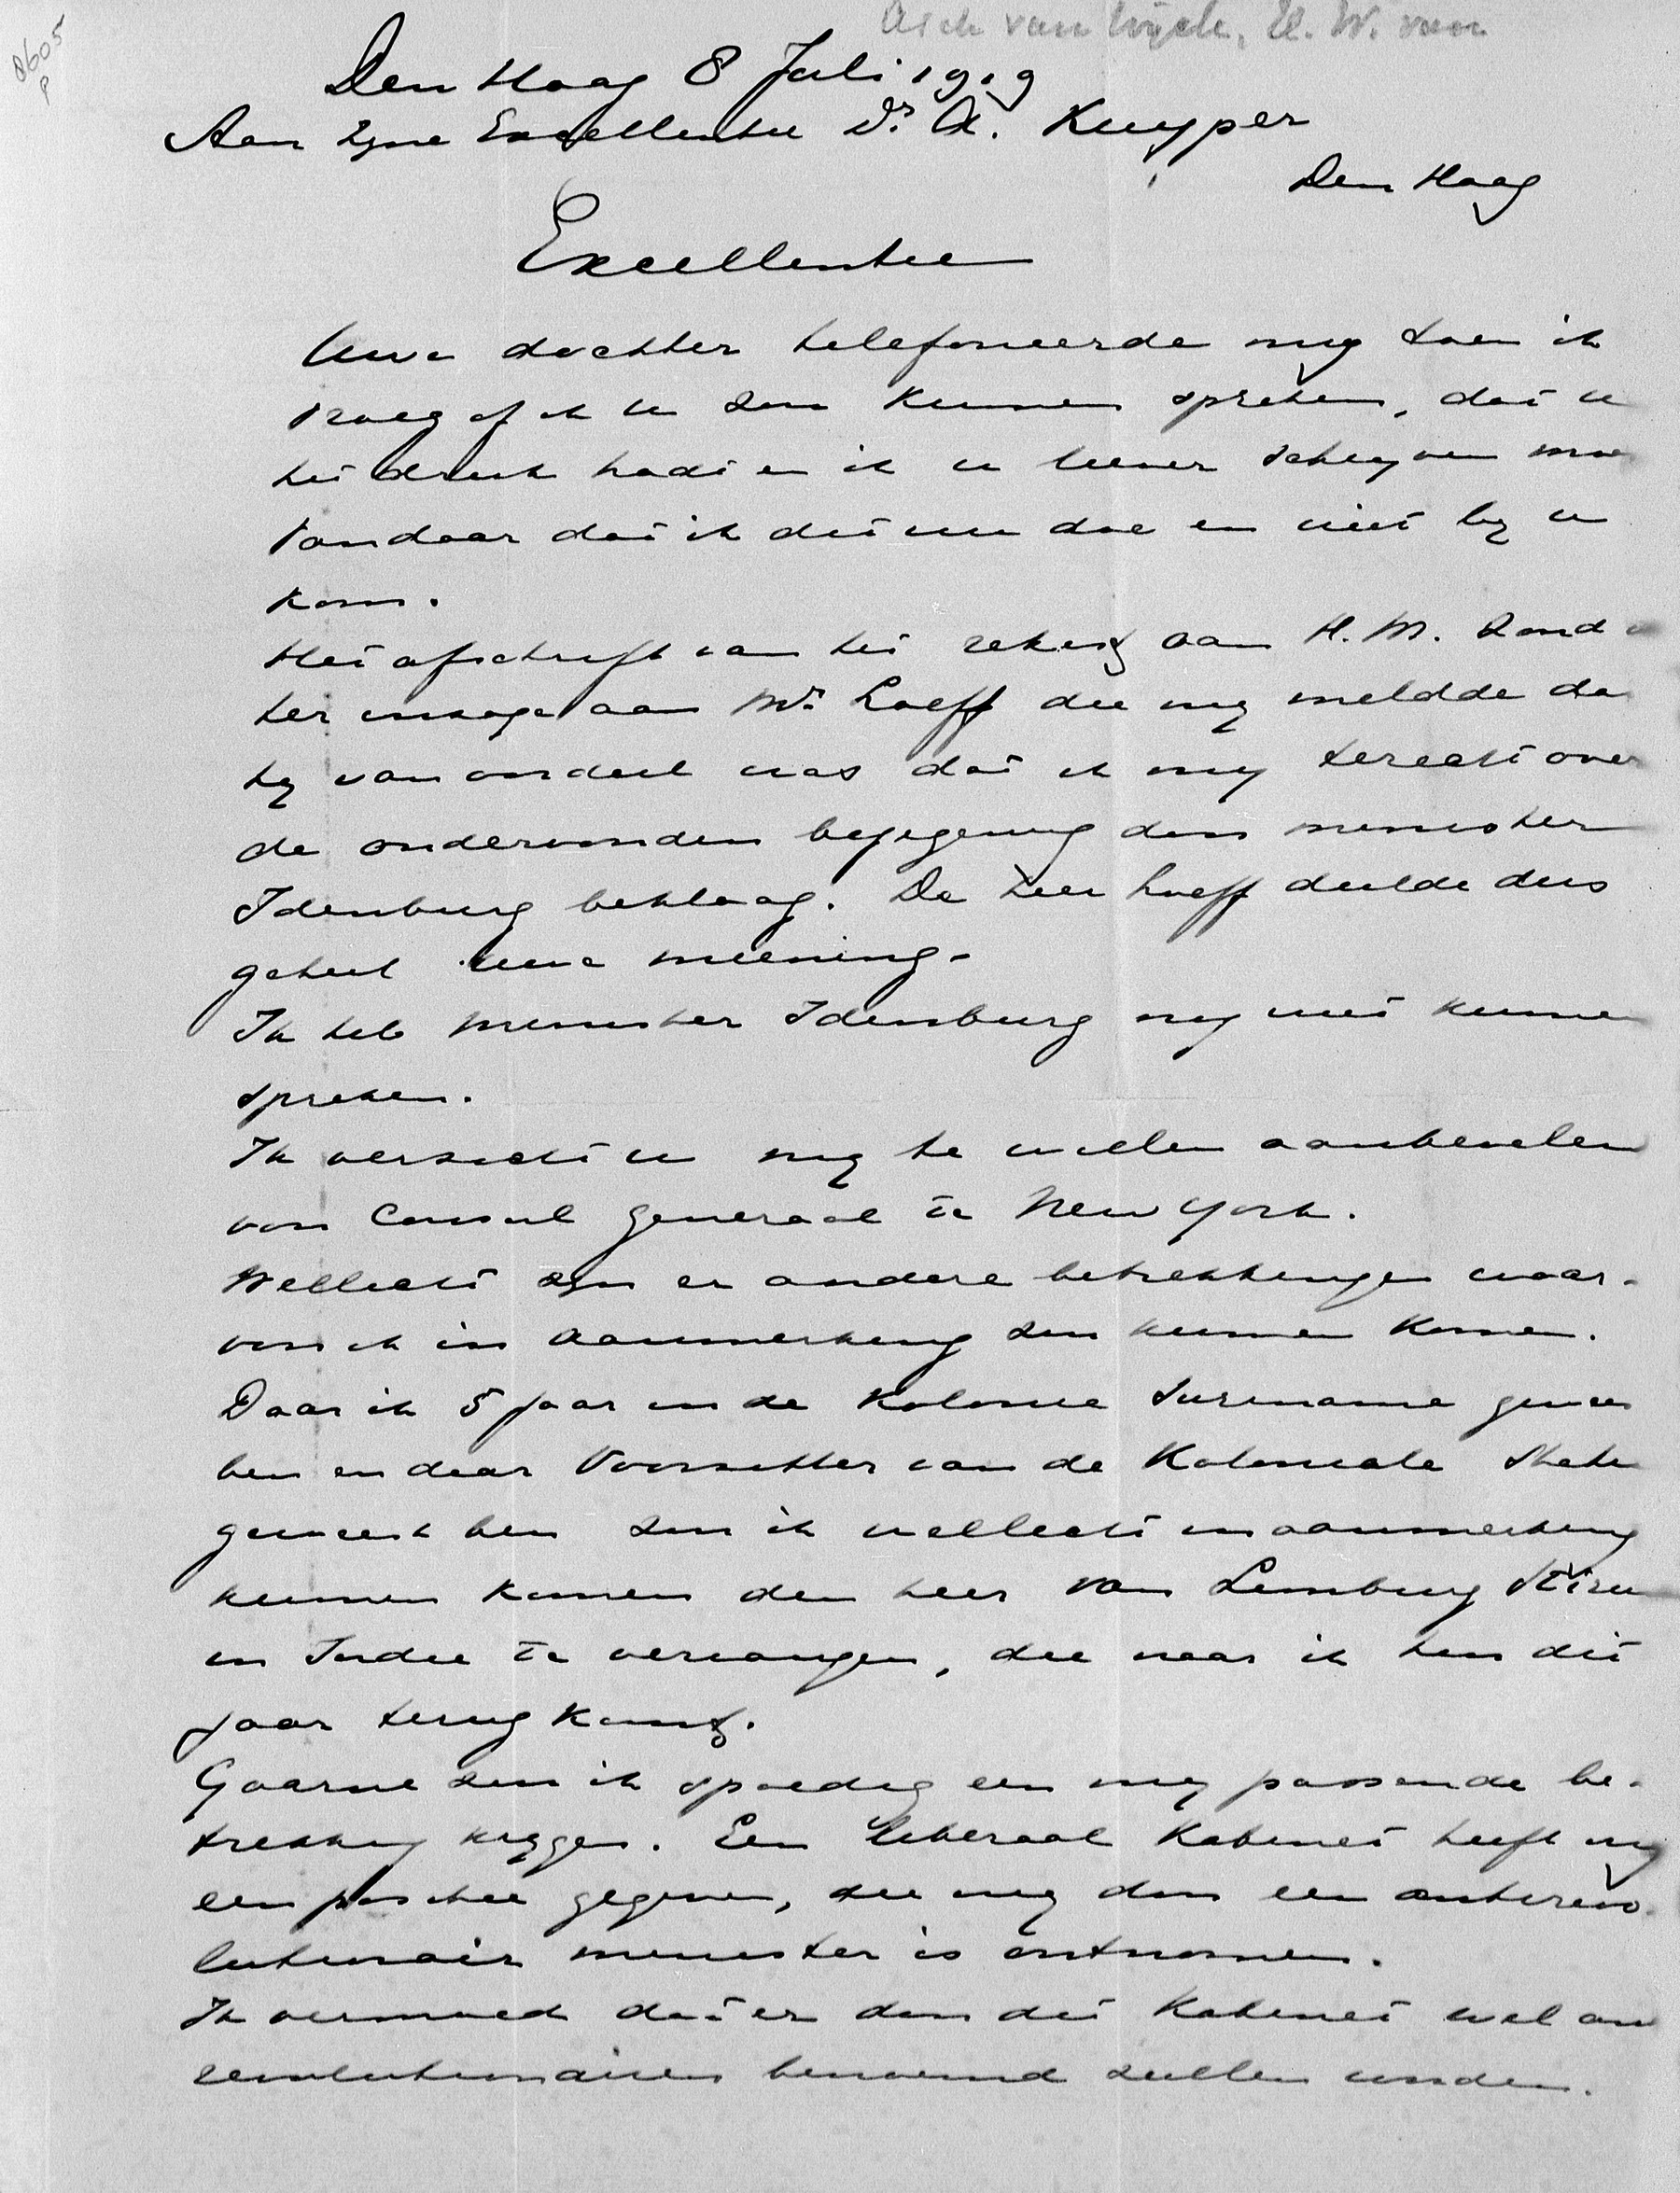 8605
P
Asch van Wijck, H. W. van
Den Haag 8 Juli 1919
Aan Zyne Excellentie Dr. A. Kuyper
Den Haag
Excellentie
Uwe dochter telefoneerde my toen ik
vroeg of ik u zou kunnen spreken, dat u
het druk hadt en ik u liever schryven moe
Vandaar dat ik dit nu doe en niet by u
kom.
Het afschrift van het rekest aan H. M. zond
ter inzage aan Mr. Loeff die my meldde da
hy van oordeel was dat ik my terecht over
de ondervonden bejegening door minister
Idenburg beklaag. De heer Loeff deelde dus
geheel uwe meening.
Ik heb minister Idenburg nog niet kunnen
spreken.
Ik verzocht u my te willen aanbevelen
voor Consul Generaal te New York.
Wellicht zyn er andere betrekkingen waar-
voor ik in aanmerking zou kunnen komen.
Daar ik 5 jaar in de Kolonie Suriname gewees
ben en daar Voorzitter van de Koloniale Staten
geweest ben zou ik wellicht in aanmerking
kunnen komen den heer van Limburg Stirum
in Indie te vervangen, die naar ik hoor dit
jaar terug komt.
Gaarne zou ik spoedig een my passende be-
trekking krygen. Een liberaal Kabinet heeft my
een positie gegeven, die my door een antirevo-
lutionair minister is ontnomen.
Ik vermoed dat er door dit Kabinet wel an
revolutionairen benoemd zullen worden.